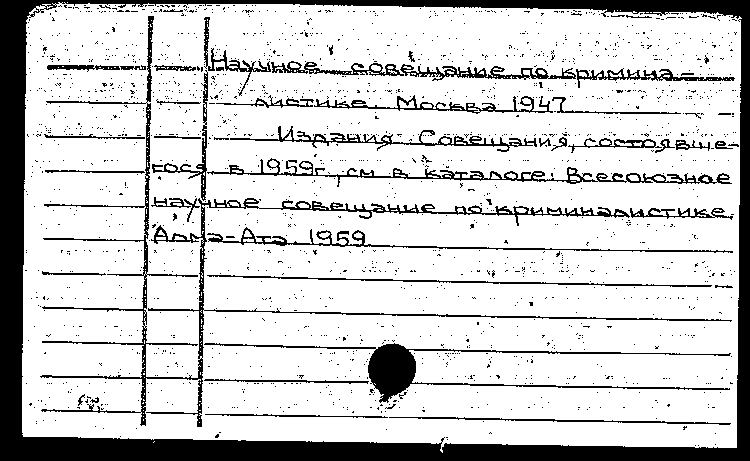 Научное совещание по кримина-
листике. Москва 1947
Издания Совещания, состоявше-
гося в 1959г, см в каталоге: Всесоюзное
научное совещание по криминалистике.
Алма-Ата. 1959